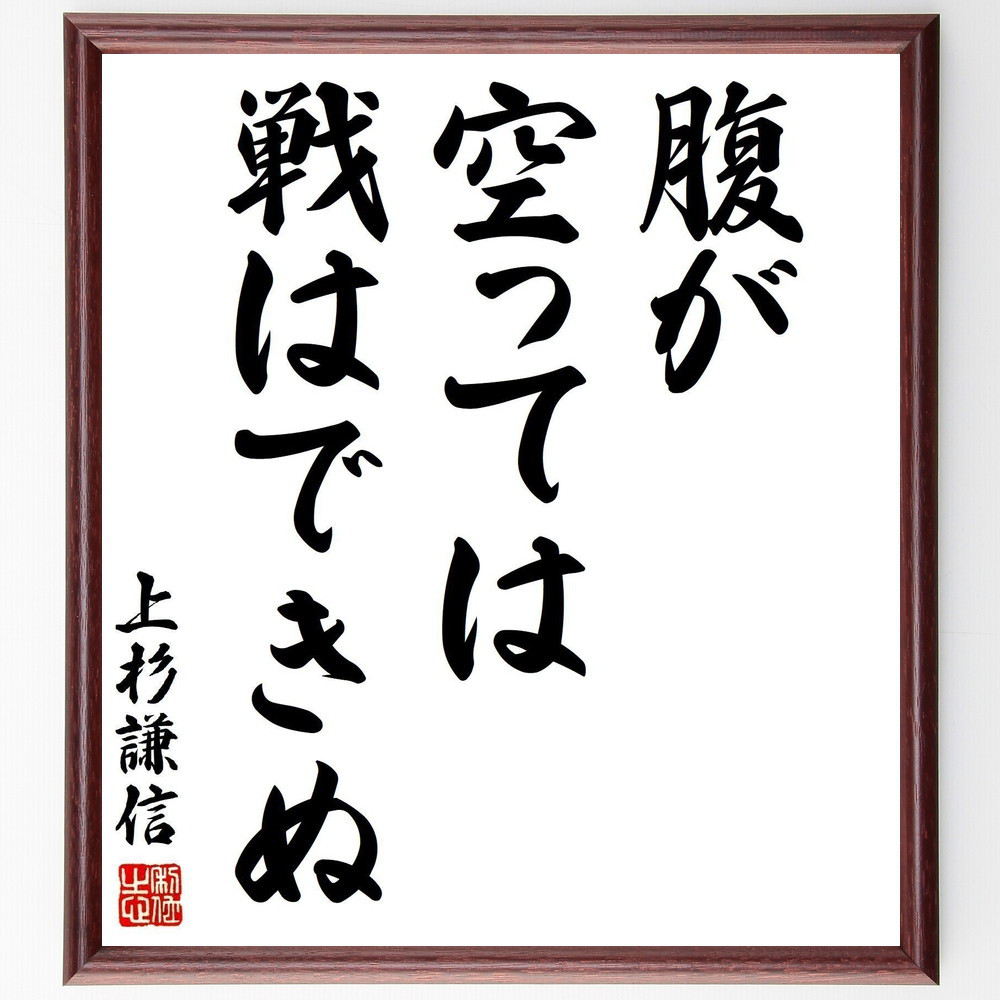 腹が
空っては
戦はできぬ
上杉謙信